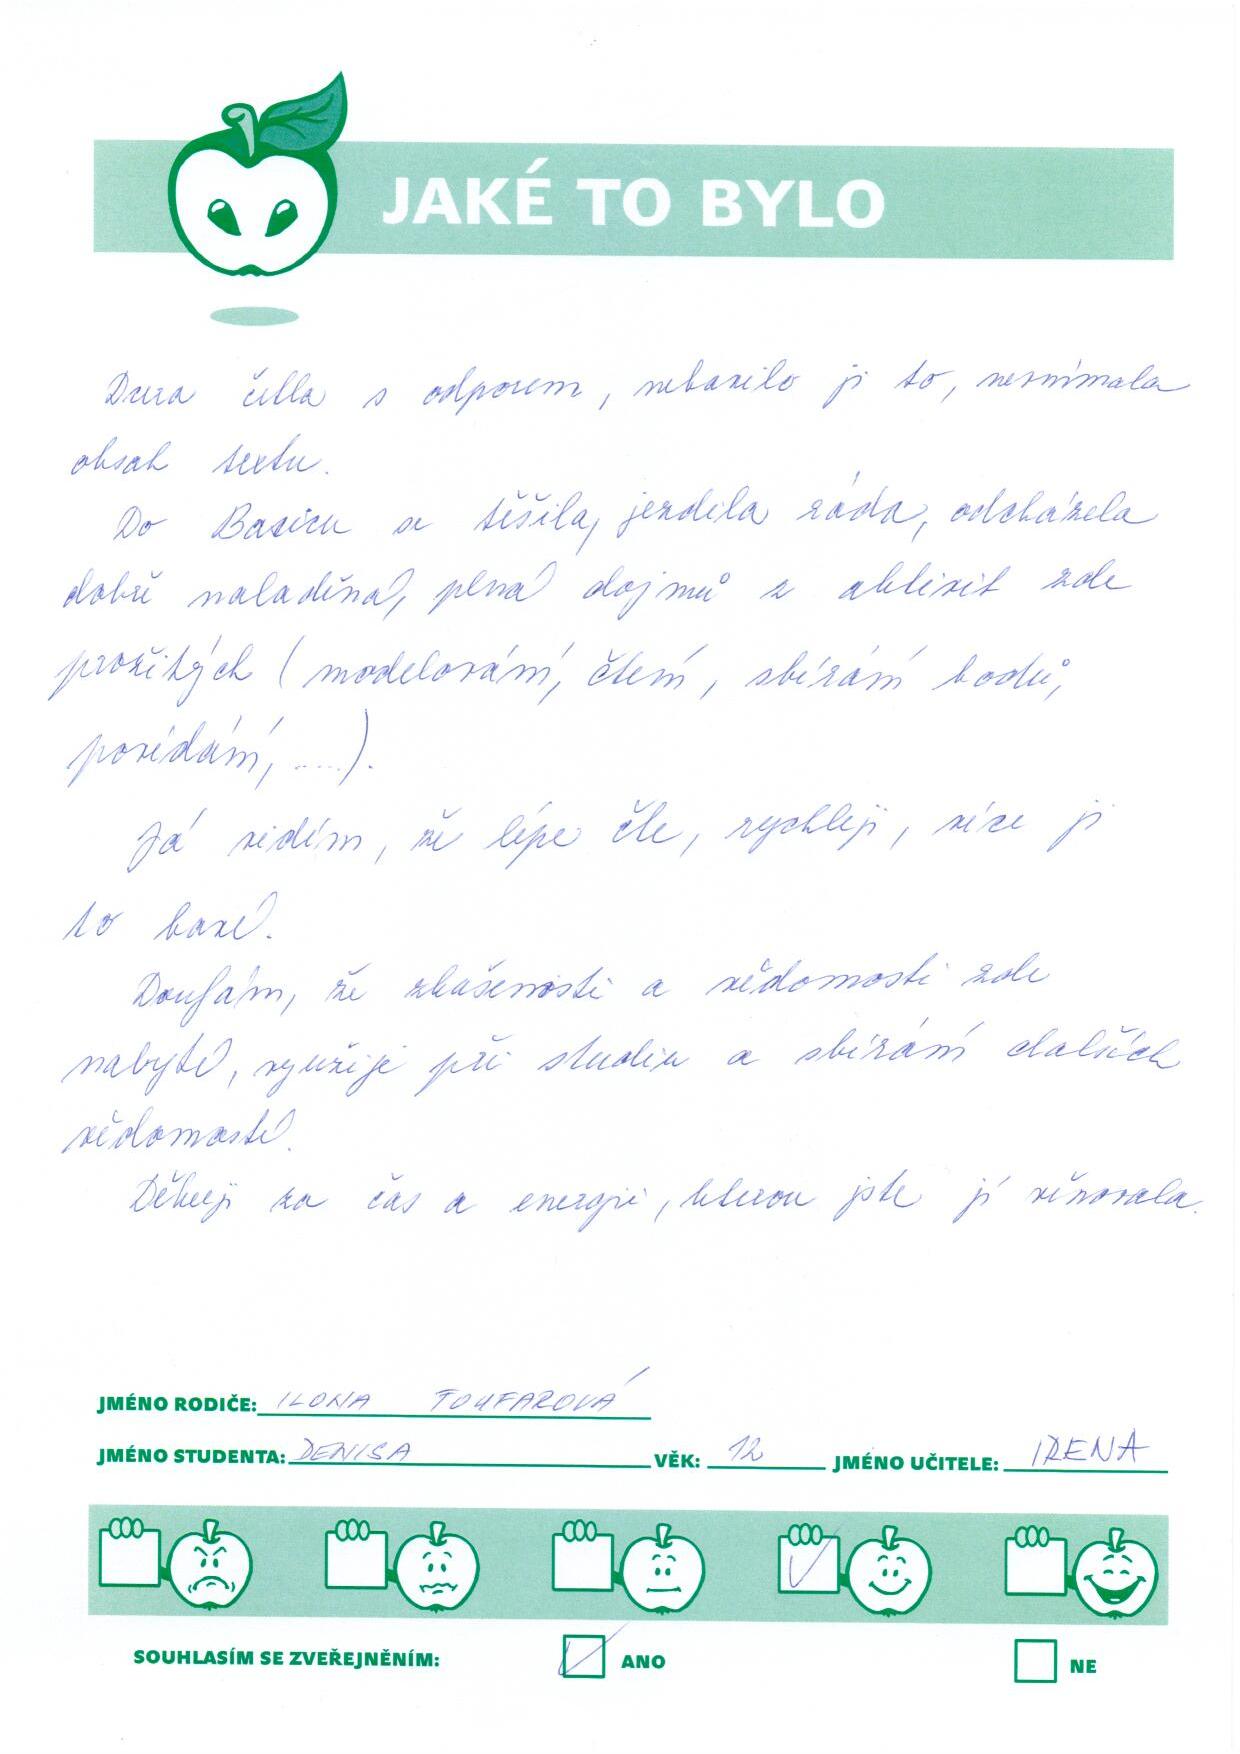 JAKÉ TO BYLO
Dcera četla s odporem, nebavilo ji to, nevnímala
obsah textu.
Do Basicu se těšila, jezdila ráda, odcházela
dobře naladěná, plná dojmů z aktivit zde
prožitých (modelování, čtení, sbírání bodů,
povídání, .....).
Já vidím, že lépe čte, rychleji, více ji
to baví.
Doufám, že zkušenosti a vědomosti zde
nabyté, využije při studiu a sbírání dalších
vědomostí.
Děkuji za čas a energii, kterou jste jí věnovala.
JMÉNO RODIČE: ILONA TOUFAROVÁ
JMÉNO STUDENTA: DENISA VĚK: 12 JMÉNO UČITELE: IRENA
SOUHLASÍM SE ZVEŘEJNĚNÍM: ANO NE